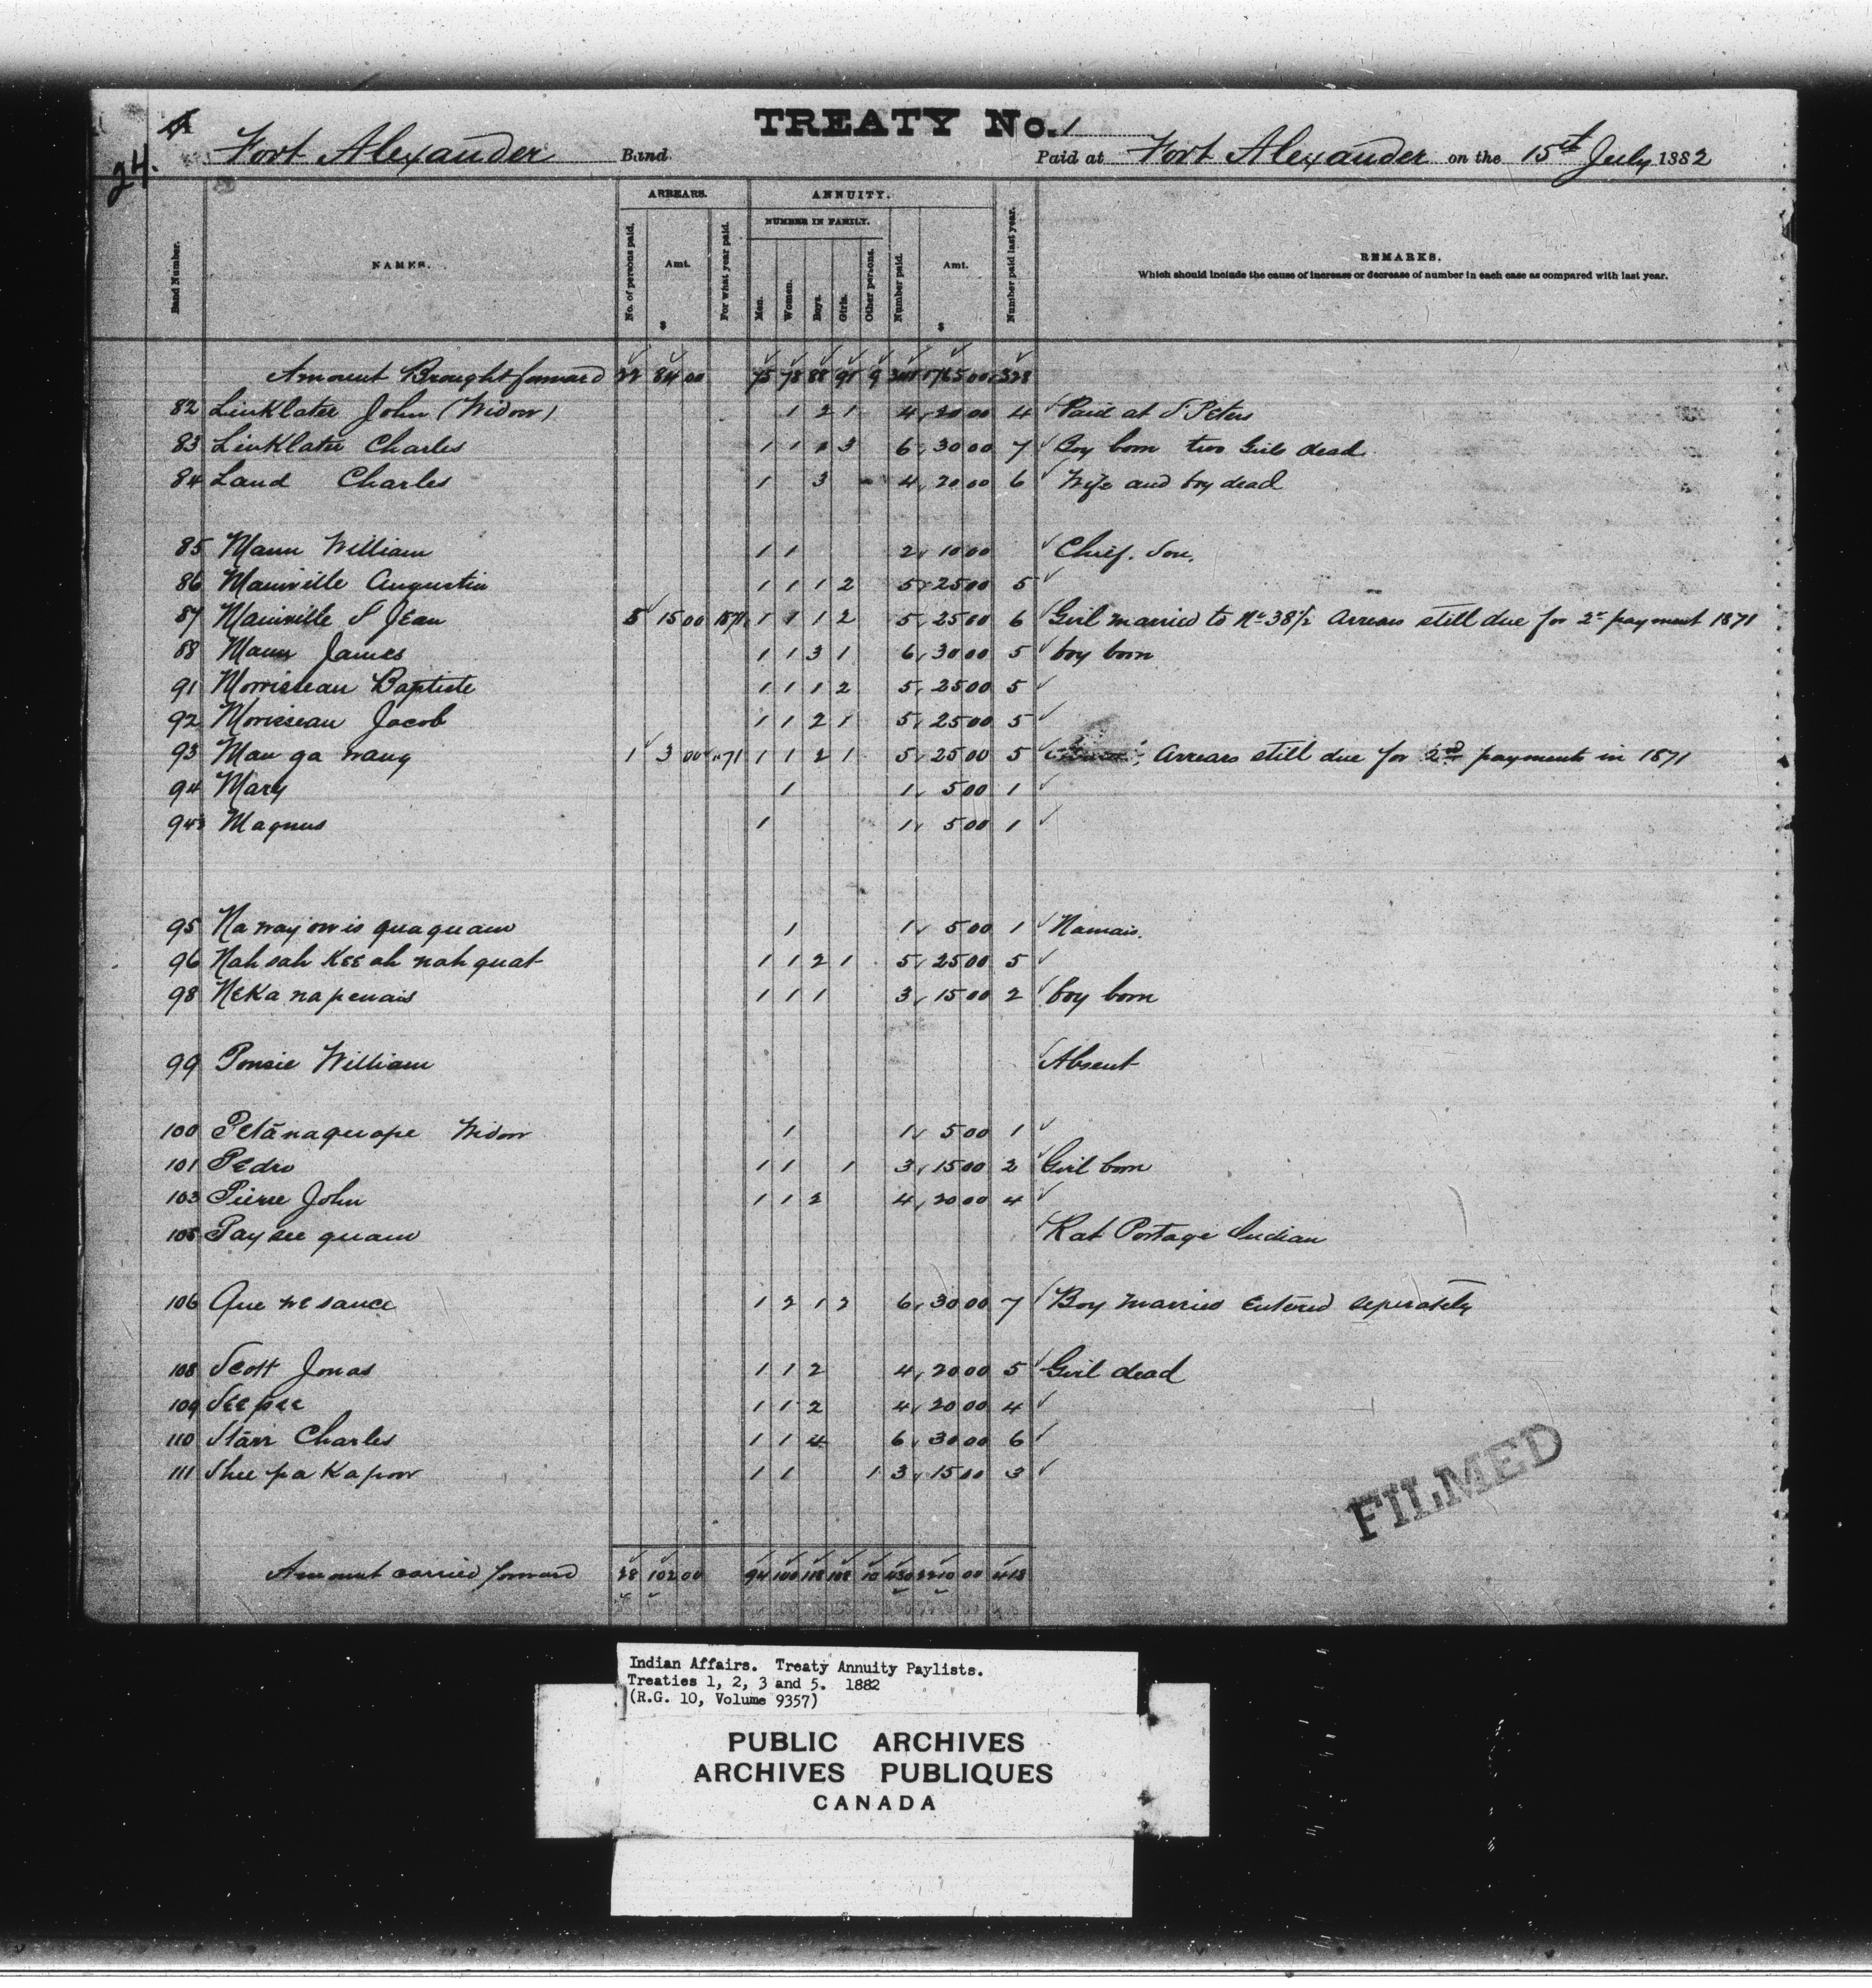 TREATY No. 1
24.
Fort Alexander Band. Paid at Fort Alexander on the 15th July 1882
ARREARS. ANNUITY.
NUMBER IN FAMILY.
Band Number. NAMES. No. of persons paid. Amt. $ For what year paid. Men. Women. Boys. Girls. Other persons. Number paid. Amt. $ Number paid last year. REMARKS.
Which should include the cause of increase or decrease of number in each case as compared with last year.
Amount Brought forward 22 84 00 75 78 88 91 9 341 1765 00 328
82 Linklater John (Widow) 1 2 1 4 20 00 4 Paid at S Peters
83 Linklater Charles 1 1 1 3 6 30 00 7 Boy born two Girls dead
84 Laud Charles 1 3 4 20 00 6 Wife and boy dead
85 Mann William 1 1 2 10 00 Chief. Son.
86 Mainville Augustin 1 1 1 2 5 25 00 5
87 Mainville S Jean 5 15 00 1871 1 1 1 2 5 25 00 6 Girl married to No 38½ Arrears still due for 2nd payment 1871
88 Mann James 1 1 3 1 6 30 00 5 boy born
91 Morrisseau Baptiste 1 1 1 2 5 25 00 5
92 Morisseau Jacob 1 1 2 1 5 25 00 5
93 Man ga wang 1 3 00 "71 1 1 2 1 5 25 00 5 Arrears still due for 2nd payments in 1871
94 Mary 1 1 5 00 1
94½ Magnus 1 1 5 00 1
95 Na way ow is qua quam 1 1 5 00 1 Namais.
96 Nah sah Kee ah nah quat 1 1 2 1 5 25 00 5
98 Neka na penais 1 1 1 3 15 00 2 boy born
99 Ponsie William Absent
100 Petanaquape Widow 1 1 5 00 1
101 Pedro 1 1 1 3 15 00 2 Girl born
103 Pierre John 1 1 2 4 20 00 4
105 Pay see quam Rat Portage Indian
106 Que we sance 1 2 1 2 6 30 00 7 Boy married Entered seperately
108 Scott Jonas 1 1 2 4 20 00 5 Girl dead
109 See pee 1 1 2 4 20 00 4
110 Starr Charles 1 1 4 6 30 00 6
111 Shee pa Ka pow 1 1 1 3 15 00 3
FILMED
Amount carried forward 28 102 00 94 100 118 108 10 430 2210 00 413
Indian Affairs. Treaty Annuity Paylists.
Treaties 1, 2, 3 and 5. 1882
(R.G. 10, Volume 9357)
PUBLIC ARCHIVES
ARCHIVES PUBLIQUES
CANADA